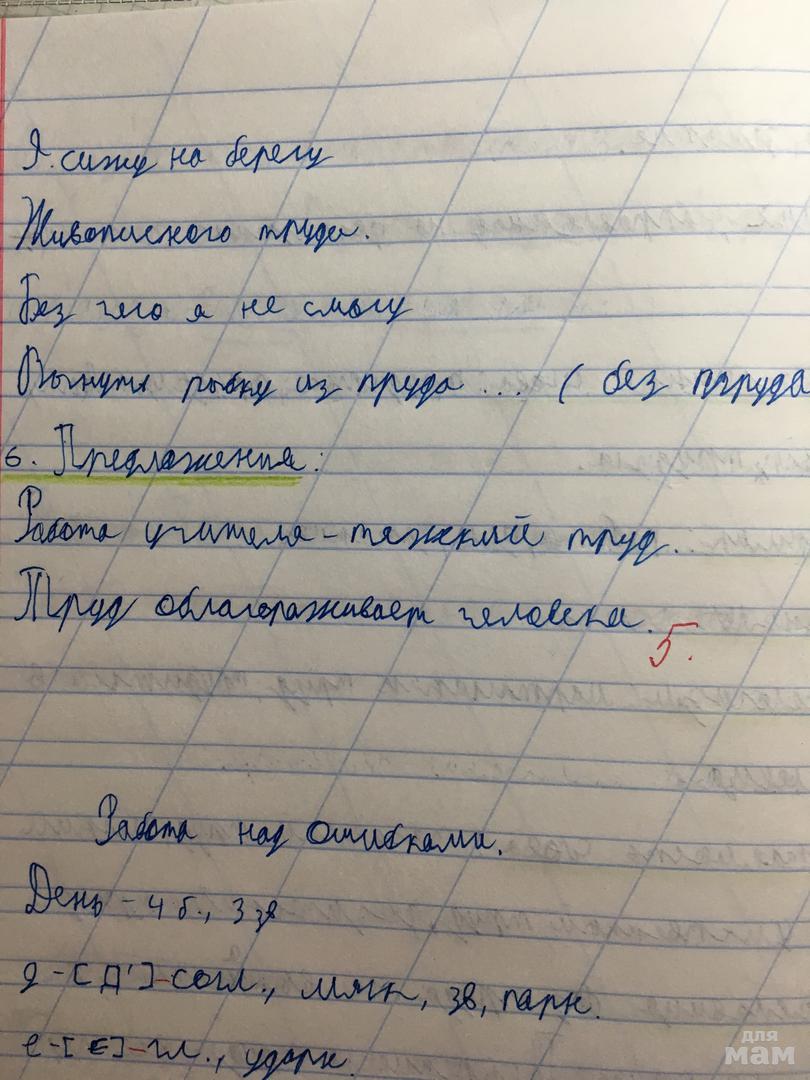 Я сижу на берегу
Живописного пруда.
Без чего я не смогу
Вытянуть рыбку из пруда ... ( без труда
6. Предложения:
Работа учителя - тяжкий труд.
Труд облагораживает человека.
5.
Работа над ошибками.
День - 4 б., 3 зв
д - [Д'] - согл., мягк, зв, парн.
е - [Є] - гл., ударн.
для
мам